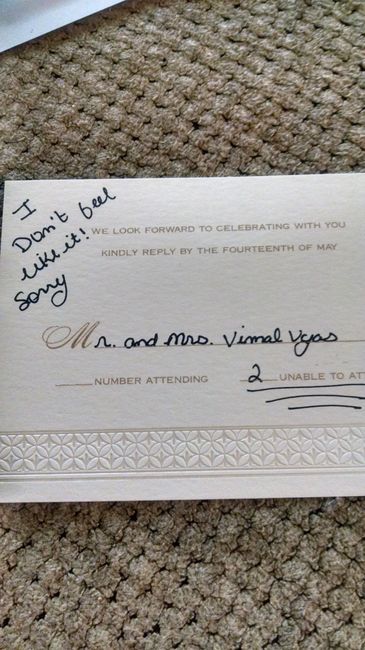 I
Don't feel
like it!
Sorry
WE LOOK FORWARD TO CELEBRATING WITH YOU
KINDLY REPLY BY THE FOURTEENTH OF MAY
Mr. and Mrs. Vimal Vyas
NUMBER ATTENDING 2 UNABLE TO AT